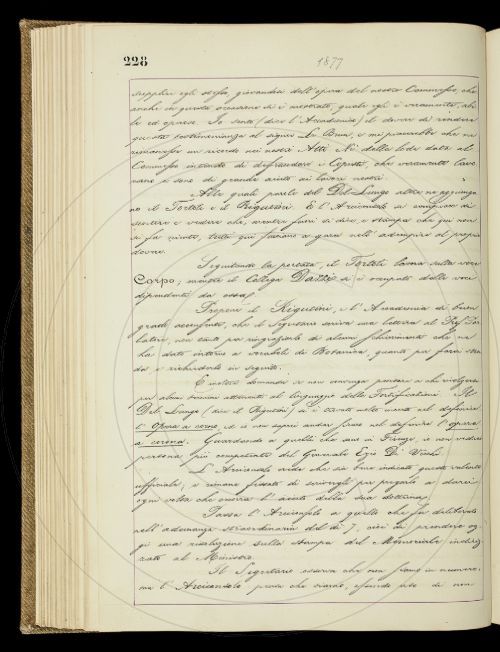 228
1877
supplire egli stesso, giovandosi dell'opera del nostro Commesso, che
anche in questa occasione si è mostrato, quale egli è veramente, abi
le ed operoso. Io sento (dice l'Accademia) il dovere di rendere
questa testimonianza al signor Le Brun, e mi piacerebbe che ne
rimanesse un ricordo nei nostri Atti. Nè dalla lode data al
Commesso intendo di disgiungere i Copisti, che veramente lavo
rano e sono di grande aiuto ai lavori nostri.
Alle quali parole del Del-Lungo altre ne aggiungo
no il Tortoli e il Rigutini. E l'Arciconsolo si compiace di
sentire e vedere che, mentre fuori si dice e stampa che qui non
si fa niente, tutti qui facciano a gara nell'adempire al proprio
dovere.
Seguitando la portata, il Tortoli torna sulla voce
Corpo; mentre il Collega Dazzi si è occupato delle voci
dipendenti da essa.
Propone il Rigutini, e l'Accademia di buon
grado acconsente, che il Segretario scriva una lettera al Prof. Par
latore, non tanto per ringraziarlo di alcuni schiarimenti che ne
ha dato intorno a vocaboli di Botanica, quanto per farne stra
da a richiederlo in seguito.
E inoltre domanda se non convenga pensare a chi rivolgersi
per alcuni termini attenenti al linguaggio delle Fortificazioni. Il
Del-Lungo (dice il Rigutini) si è trovato nelle incertezze nel definire
l'Opera a corno, ed io non saprei andar franco nel definire l'opera
a corona. Guardando a quelli che sono in Firenze, io non vedrei
persona più competente del Generale Ezio De' Vecchi.
L'Arciconsolo crede che sia bene indicato questo valente
ufficiale, e rimane fissato di scrivergli per pregarlo a darci
ogni volta che occorra l'aiuto della sua dottrina.
Passa l'Arciconsolo a quello che fu deliberato
nell'adunanza straordinaria del dì 7, cioè di prendere og
gi una risoluzione sulla stampa del Memoriale indiriz
zato al Ministro.
Il Segretario osserva che non siamo in numero:
ma l'Arciconsolo crede che